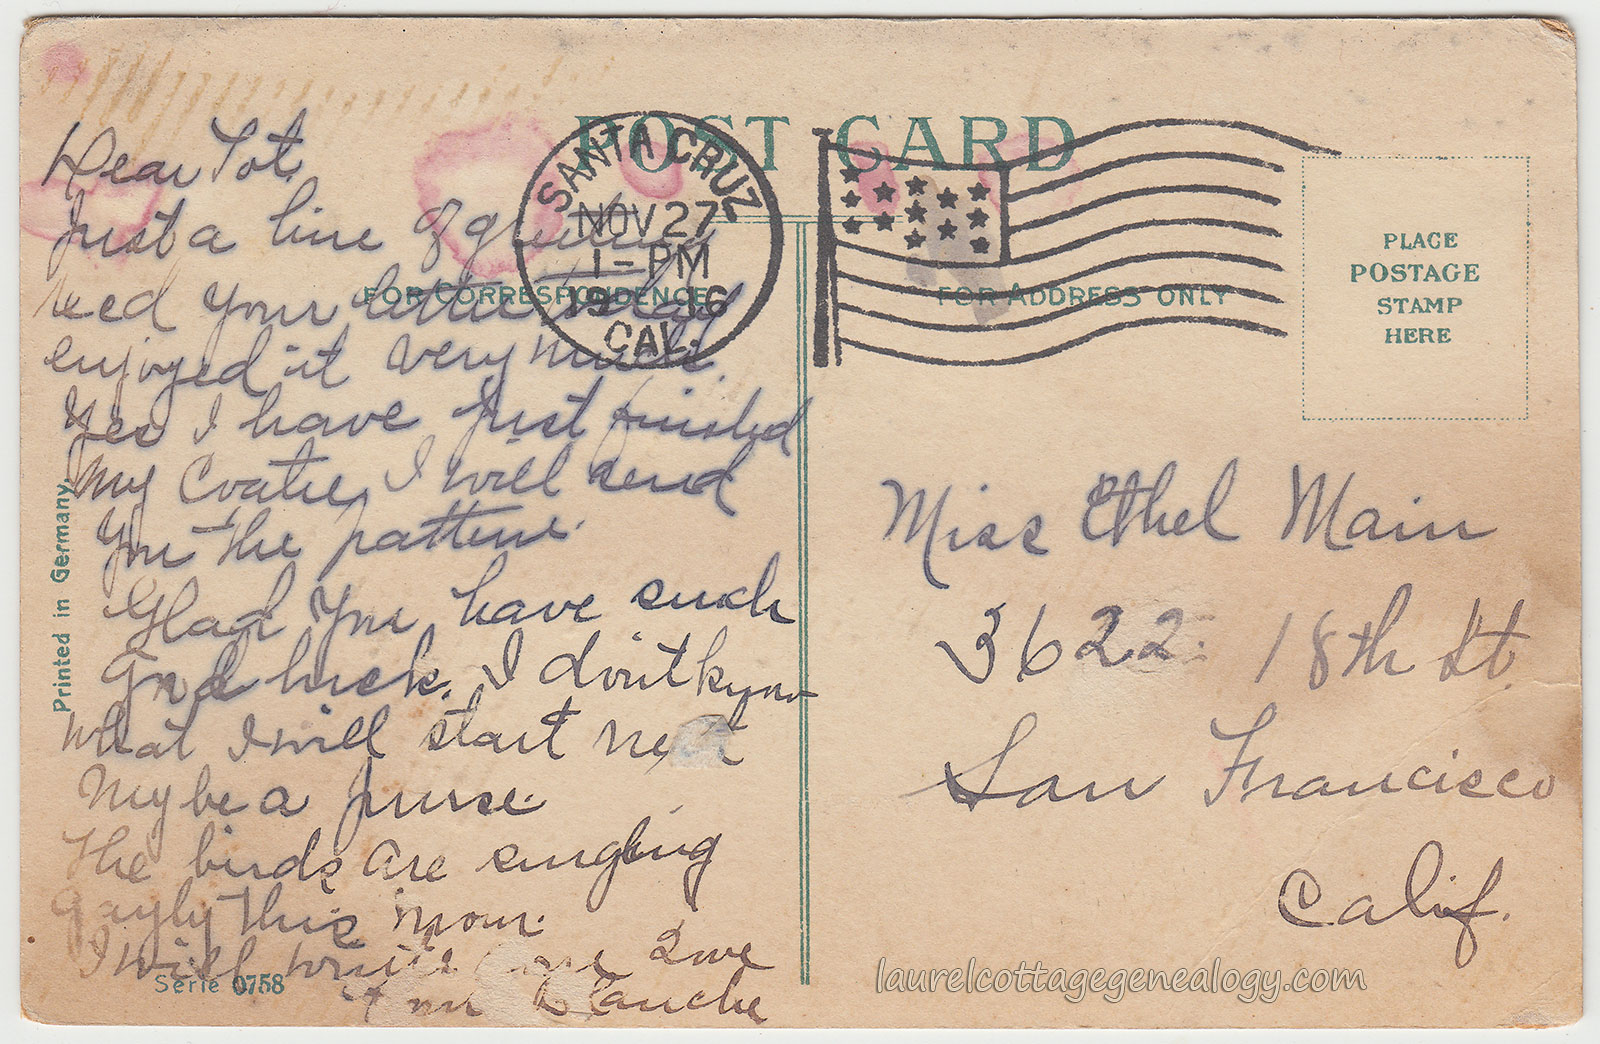 POST CARD
SANTA CRUZ
NOV 27
1-PM
1916
CAL.
FOR CORRESPONDENCE
FOR ADDRESS ONLY
PLACE
POSTAGE
STAMP
HERE
Dear Tot.
Just a line of greeting
recd your letter & glad
enjoyed it very much.
Yes I have just finished
My Coatie, I will send
You the pattern.
Glad You have such
Good luck. I don't know
what I will start next
Mybe a purse.
The birds are singing
gayly this morn.
I will write love
Ann Blanche
Printed in Germany.
Serie 0758
Miss Ethel Main
3622 18th St.
San Francisco
Calif.
laurelcottagegenealogy.com